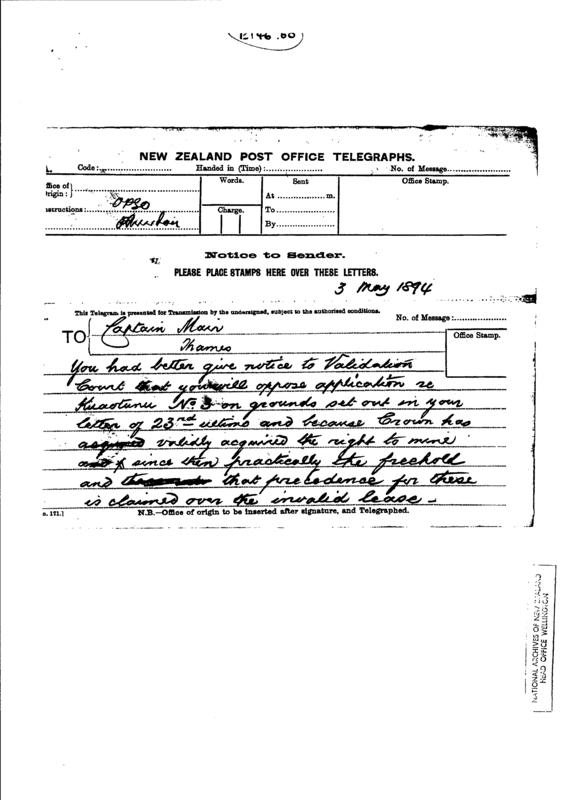 12146.60
NEW ZEALAND POST OFFICE TELEGRAPHS.
Code: Handed in (Time): No. of Message
ffice of
rigin:
Words. Sent Office Stamp.
At m.
structions: OPSO
Charge. To
By
Notice to Sender.
PLEASE PLACE STAMPS HERE OVER THESE LETTERS.
3 May 1894
This Telegram is presented for Transmission by the undersigned, subject to the authorised conditions.
No. of Message:
TO Captain Mair
Thames
Office Stamp.
You had better give notice to Validation
Court that you will oppose application re
Kuaotunu No 3 on grounds set out in your
letter of 23rd ultimo and because Crown has
acquired validly acquired the right to mine
and & since then practically the freehold
and that precedence for these
is claimed over the invalid lease –
o. 171.] N.B.—Office of origin to be inserted after signature, and Telegraphed.
NATIONAL ARCHIVES OF NEW ZEALAND
HEAD OFFICE WELLINGTON